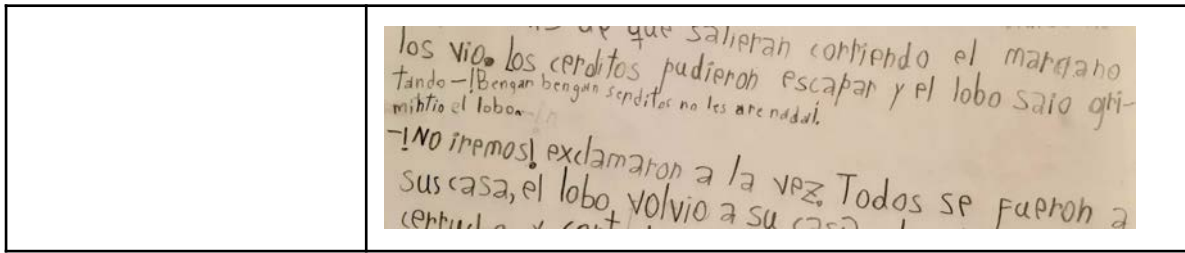 de que salieran corriendo el margano
los vio. los cerditos pudieron escapar y el lobo saio gri-
tando -¡Bengan bengan serditos no les are nada!.
mihtio el lobo.
-¡No iremos! exclamaron a la vez. Todos se fueron a
sus casa, el lobo, volvio a su casa